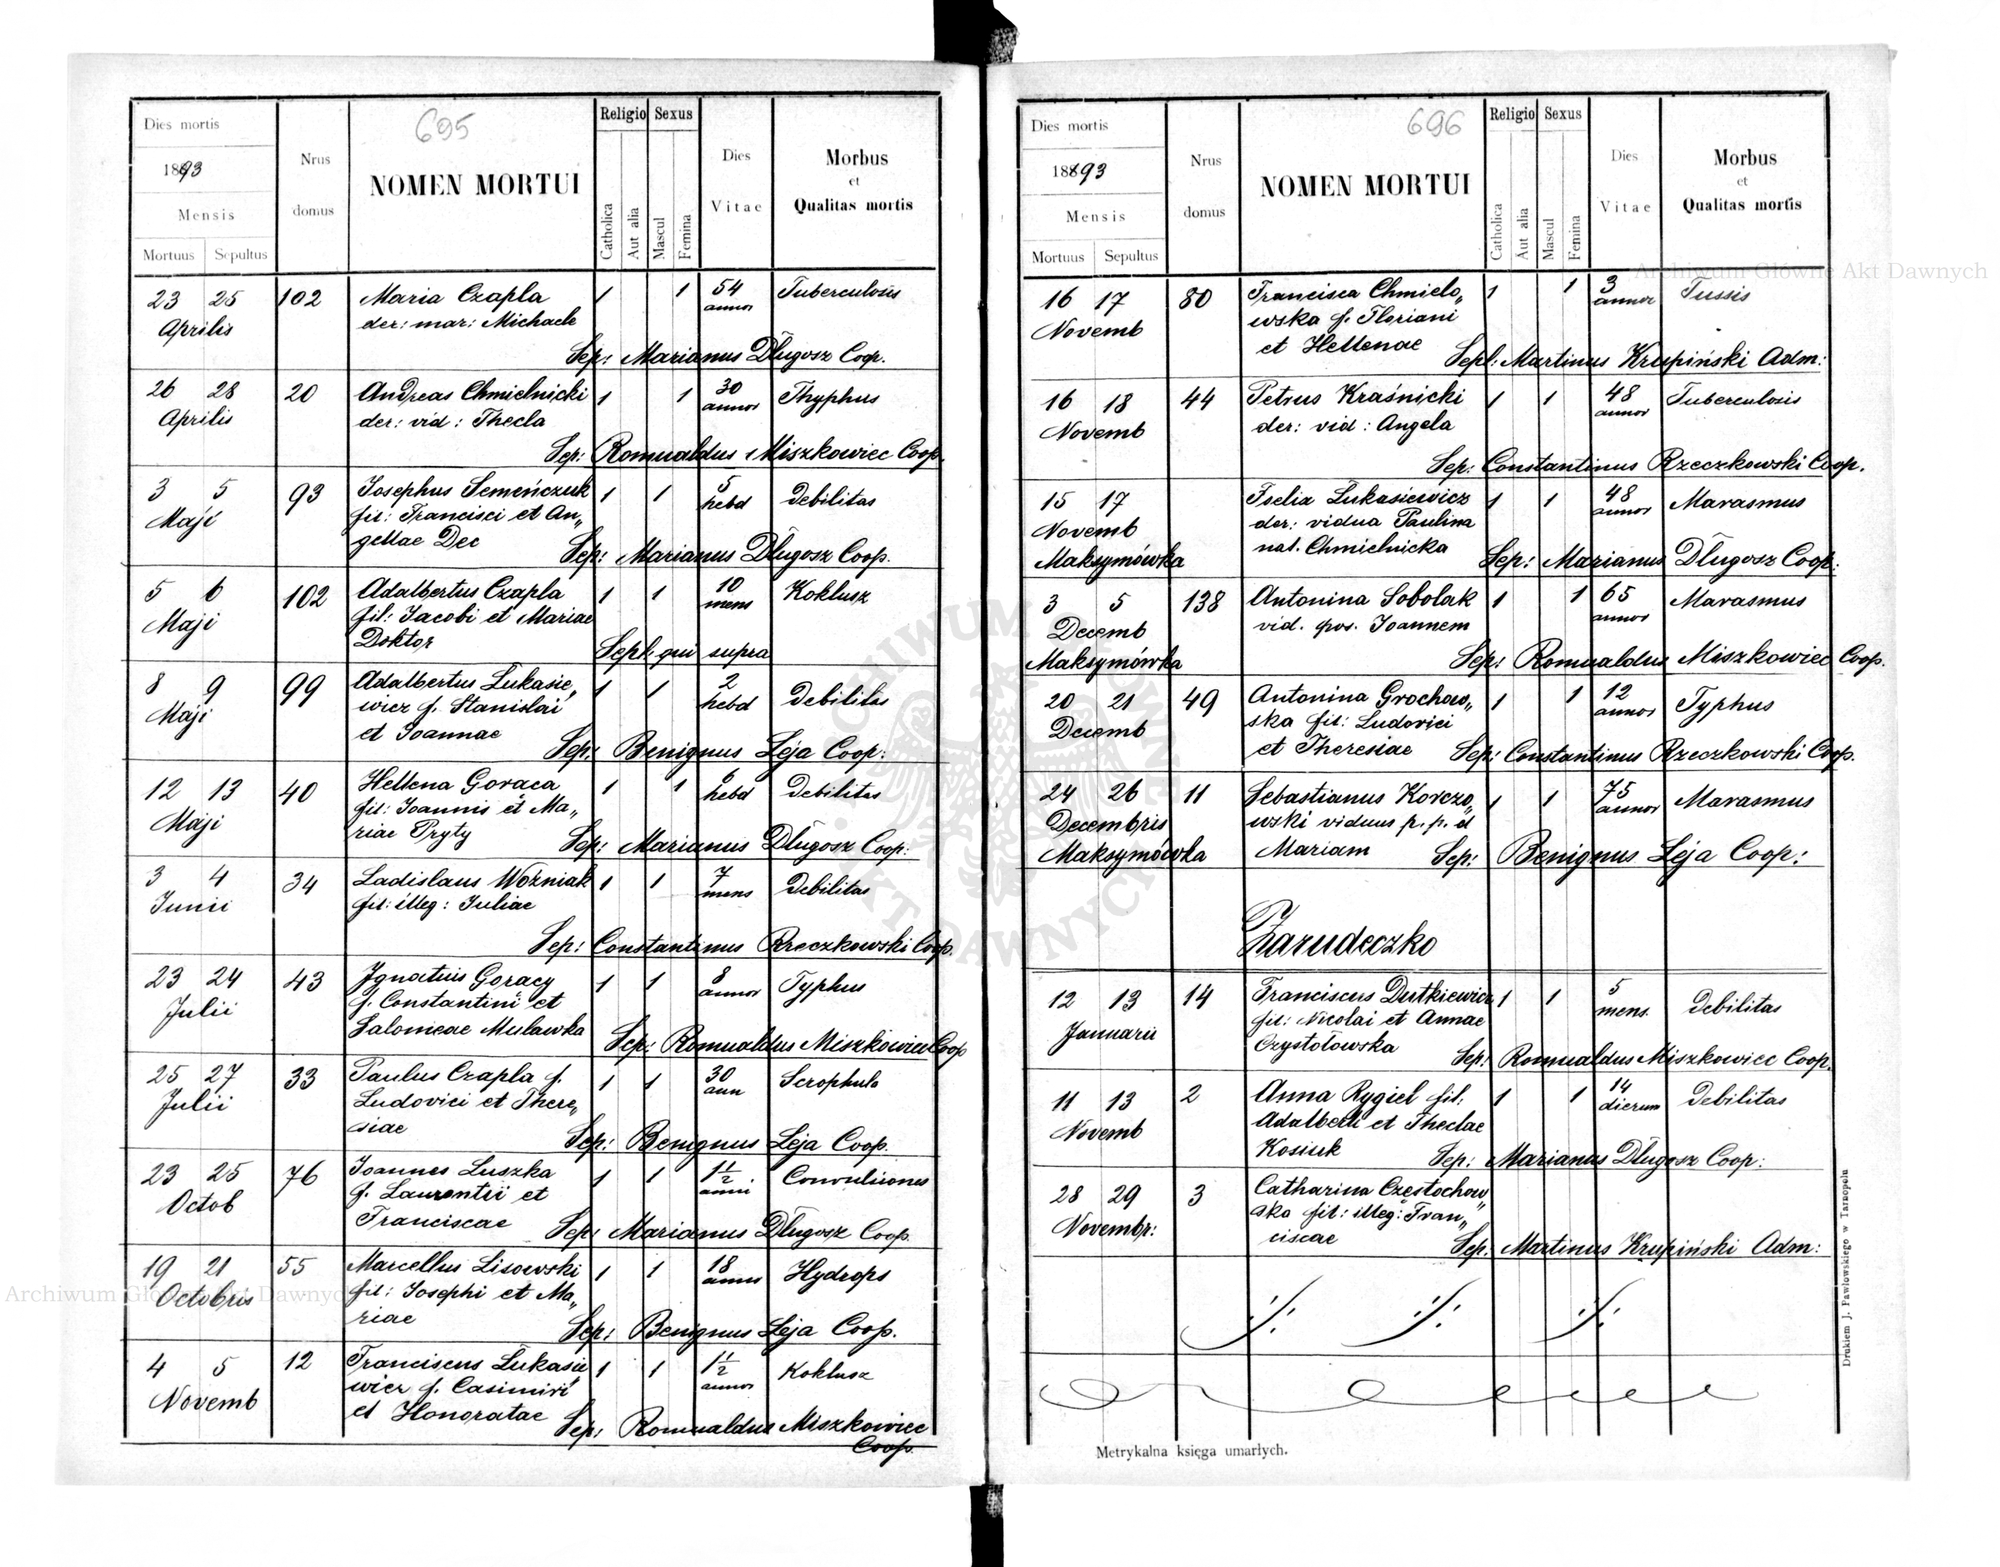 695
Dies mortis
1893
Mensis
Mortuus Sepultus
Nrus domus
NOMEN MORTUI
Religio Sexus
Catholica Aut alia Mascul Femina
Dies Vitae
Morbus
et
Qualitas mortis
23 25 102 Maria Czapla 1 1 54 Tuberculosis
Aprilis der: mar: Michaele annor
Sep: Marianus Długosz Coop.
26 28 20 Andreas Chmielnicki 1 1 30 Thyphus
Aprilis der: vid: Thecla annor
Sep: Romualdus Miszkowiec Coop.
3 5 93 Josephus Semeńczuk 1 1 5 Debilitas
Maji fil: Francisci et An„ hebd
gellae Dec Sep: Marianus Długosz Coop.
5 6 102 Adalbertus Czapla 1 1 10 Koklusz
Maji fil: Jacobi et Mariae mens
Doktor Sepl. qui supra
8 9 99 Adalbertus Łukasie„ 1 1 2 Debilitas
Maji wicz f. Stanislai hebd
et Joannae Sep: Benignus Leja Coop:
12 13 40 Hellena Goraca 1 1 6 Debilitas
Maji fil: Joannis et Ma„ hebd
riae Pryty Sep: Marianus Długosz Coop:
3 4 34 Ladislaus Woźniak 1 1 7 Debilitas
Junii fil: illeg: Juliae mens
Sep: Constantinus Rzeczkowski Coop.
23 24 43 Jgnatius Goracy 1 1 8 Typhus
Julii f. Constantini et annor
Salomeae Mulawka Sep: Romualdus Miszkowiec Coop
25 27 33 Paulus Czapla f. 1 1 30 Scrophulo
Julii Ludovici et There„ ann
siae Sep: Benignus Leja Coop.
23 25 76 Joannes Luszka 1 1 1½ Convulsiones
Octob f. Laurentii et anni
Franciscae Sep: Marianus Długosz Coop.
19 21 55 Marcellus Lisowski 1 1 18 Hydrops
Octobris fil: Josephi et Ma„ annor
riae Sep: Benignus Leja Coop.
4 5 12 Franciscus Łukasie 1 1 1½ Koklusz
Novemb wicz f. Casimiri annor
et Honoratae Sep: Romualdus Miszkowiec
Coop.
696
Dies mortis
1893
Mensis
Mortuus Sepultus
Nrus domus
NOMEN MORTUI
Religio Sexus
Catholica Aut alia Mascul Femina
Dies Vitae
Morbus
et
Qualitas mortis
16 17 80 Francisca Chmielo„ 1 1 3 Tussis
Novemb wska f. Floriani annor
et Hellenae Sepl: Martinus Krupiński Adm:
16 18 44 Petrus Kraśnicki 1 1 48 Tuberculosis
Novemb der: vid: Angela annor
Sep: Constantinus Rzeczkowski Coop.
15 17 Łukasiewicz 1 1 48 Marasmus
Novemb der: vidua Paulina annor
Maksymówka nat. Chmielnicka Sep: Marianus Długosz Coop:
3 5 138 Antonina Sobolak 1 1 65 Marasmus
Decemb vid. pos. Joannem annor
Maksymówka Sep: Romualdus Miszkowiec Coop.
20 21 49 Antonina Grochow„ 1 1 12 Typhus
Decemb ska fil: Ludovici annor
et Theresiae Sep: Constantinus Rzeczkowski Coop.
24 26 11 Sebastianus Korczo„ 1 1 75 Marasmus
Decembris wski viduus p. p. d annor
Maksymówka Mariam Sep: Benignus Leja Coop:
Zarudeczko
12 13 14 Franciscus Dutkiewicz 1 1 5 Debilitas
Januarii fil: Nicolai et Annae mens.
Czystołowska Sep: Romualdus Miszkowiec Coop.
11 13 2 Anna Rygiel fil: 1 1 14 Debilitas
Novemb Adalberti et Theclae dierum
Kosiuk Sep: Marianus Długosz Coop:
28 29 3 Catharina Częstochow„
Novembr: ska fil: illeg: Fran„
ciscae Sep. Martinus Krupiński Adm:
Metrykalna księga umarłych.
Drukiem J. Pawłowskiego w Tarnopolu
Archiwum Główne Akt Dawnych
Archiwum Główne Akt Dawnych
ARCHIWUM GŁÓWNE AKT DAWNYCH